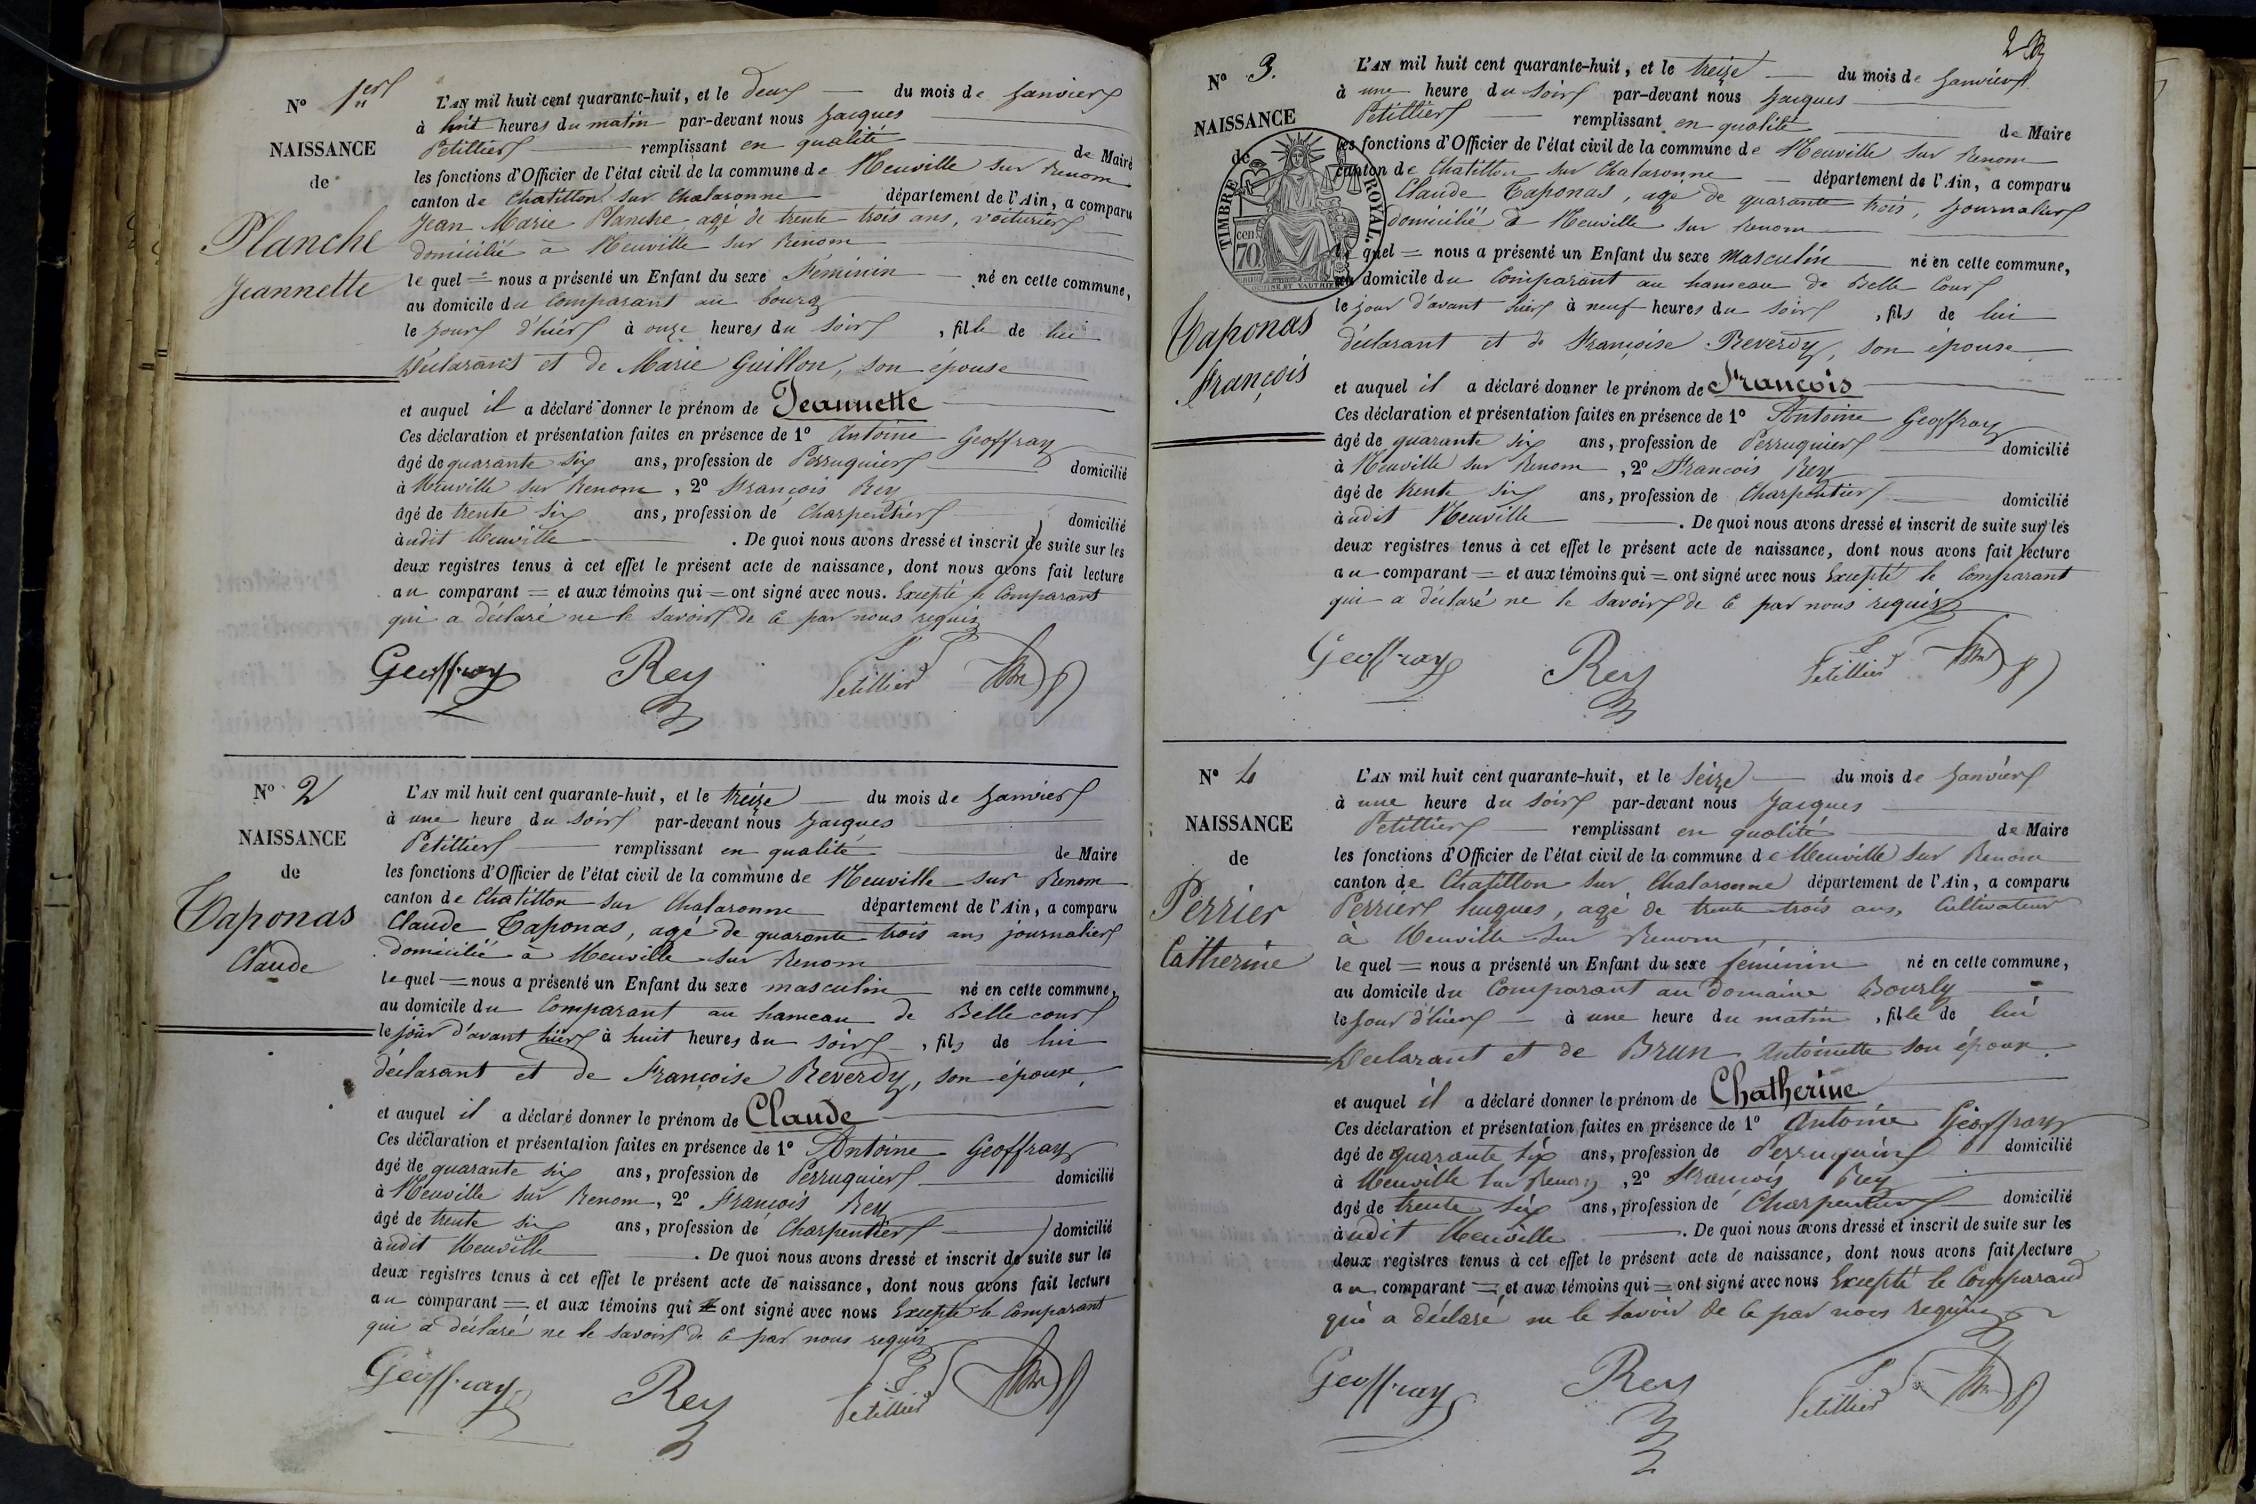 N° 1er
NAISSANCE
de
Planche
Jeannette
L'AN mil huit cent quarante-huit, et le deux du mois de Janvier
à huit heures du matin par-devant nous Jacques
Petillier remplissant en qualité de Maire
les fonctions d'Officier de l'état civil de la commune de Neuville sur Renom
canton de Chatillon sur Chalaronne département de l'Ain, a comparu
Jean Marie Planche agé de trente trois ans, voiturier
domicilié à Neuville sur Renom
le quel = nous a présenté un Enfant du sexe Féminin né en cette commune,
au domicile du Comparant au bourg
le jour d'hier à onze heures du soir, fille de lui
Déclarant et de Marie Guillon, son épouse
et auquel il a déclaré donner le prénom de Jeannette
Ces déclaration et présentation faites en présence de 1° Antoine Geoffray
âgé de quarante six ans, profession de Perruquier domicilié
à Neuville sur Renom, 2° François Rey
âgé de trente six ans, profession de Charpentier domicilié
àudit Neuville. De quoi nous avons dressé et inscrit de suite sur les
deux registres tenus à cet effet le présent acte de naissance, dont nous avons fait lecture
au comparant = et aux témoins qui = ont signé avec nous. Excepté le Comparant
qui a déclaré ne le savoir de ce par nous requis
Geoffray Rey Petillier
N° 2
NAISSANCE
de
Taponas
Claude
L'AN mil huit cent quarante-huit, et le treize du mois de Janvier
à une heure du soir par-devant nous Jacques
Petillier remplissant en qualité de Maire
les fonctions d'Officier de l'état civil de la commune de Neuville sur Renom
canton de Chatillon sur Chalaronne département de l'Ain, a comparu
Claude Taponas, agé de quarante trois ans journalier
domicilié à Neuville sur Renom
le quel = nous a présenté un Enfant du sexe masculin né en cette commune,
au domicile du Comparant au hameau de Belle cour
le jour d'avant hier à huit heures du soir, fils de lui
déclarant et de Françoise Reverdy, son épouse,
et auquel il a déclaré donner le prénom de Claude
Ces déclaration et présentation faites en présence de 1° Antoine Geoffray
âgé de quarante six ans, profession de Perruquier domicilié
à Neuville sur Renom, 2° François Rey
âgé de trente six ans, profession de Charpentier domicilié
àudit Neuville. De quoi nous avons dressé et inscrit de suite sur les
deux registres tenus à cet effet le présent acte de naissance, dont nous avons fait lecture
au comparant = et aux témoins qui = ont signé avec nous Excepté le Comparant
qui a déclaré ne le savoir de ce par nous requis
Geoffray Rey Petillier
2
N° 3.
NAISSANCE
de
TIMBRE ROYAL.
70 cen.
Taponas
François
L'AN mil huit cent quarante-huit, et le treize du mois de Janvier
à une heure du soir par-devant nous Jacques
Petillier remplissant en qualité de Maire
les fonctions d'Officier de l'état civil de la commune de Neuville sur Renom
canton de Chatillon sur Chalaronne département de l'Ain, a comparu
Claude Taponas, agé de quarante trois, Journalier
domicilié à Neuville sur Renom
le quel = nous a présenté un Enfant du sexe Masculin né en cette commune,
au domicile du Comparant au hameau de Belle Cour
le jour d'avant hier à neuf heures du soir, fils de lui
déclarant et de Françoise Reverdy, son épouse
et auquel il a déclaré donner le prénom de François
Ces déclaration et présentation faites en présence de 1° Antoine Geoffray
âgé de quarante six ans, profession de Perruquier domicilié
à Neuville sur Renom, 2° François Rey
âgé de trente six ans, profession de Charpentier domicilié
àudit Neuville. De quoi nous avons dressé et inscrit de suite sur les
deux registres tenus à cet effet le présent acte de naissance, dont nous avons fait lecture
au comparant = et aux témoins qui = ont signé avec nous Excepté le Comparant
qui a déclaré ne le savoir de ce par nous requis
Geoffray Rey Petillier
N° 4
NAISSANCE
de
Perrier
Catherine
L'AN mil huit cent quarante-huit, et le Seize du mois de Janvier
à une heure du soir par-devant nous Jacques
Petillier remplissant en qualité de Maire
les fonctions d'Officier de l'état civil de la commune de Neuville sur Renom
canton de Chatillon sur Chalaronne département de l'Ain, a comparu
Perrier hugues, agé de trente trois ans, Cultivateur
à Neuville sur Renom
le quel = nous a présenté un Enfant du sexe féminin né en cette commune,
au domicile du Comparant au Domaine Bourly
le Jour d'hier à une heure du matin, fille de lui
Déclarant et de Brun Antoinette son épouse.
et auquel il a déclaré donner le prénom de Chatherine
Ces déclaration et présentation faites en présence de 1° Antoine Geoffray
âgé de quarante six ans, profession de Perruquier domicilié
à Neuville sur Renom, 2° François Rey
âgé de trente six ans, profession de Charpentier domicilié
àudit Neuville. De quoi nous avons dressé et inscrit de suite sur les
deux registres tenus à cet effet le présent acte de naissance, dont nous avons fait lecture
au comparant = et aux témoins qui = ont signé avec nous Excepté le Comparand
qui a déclaré ne le savoir de ce par nous requis
Geoffray Rey Petillier